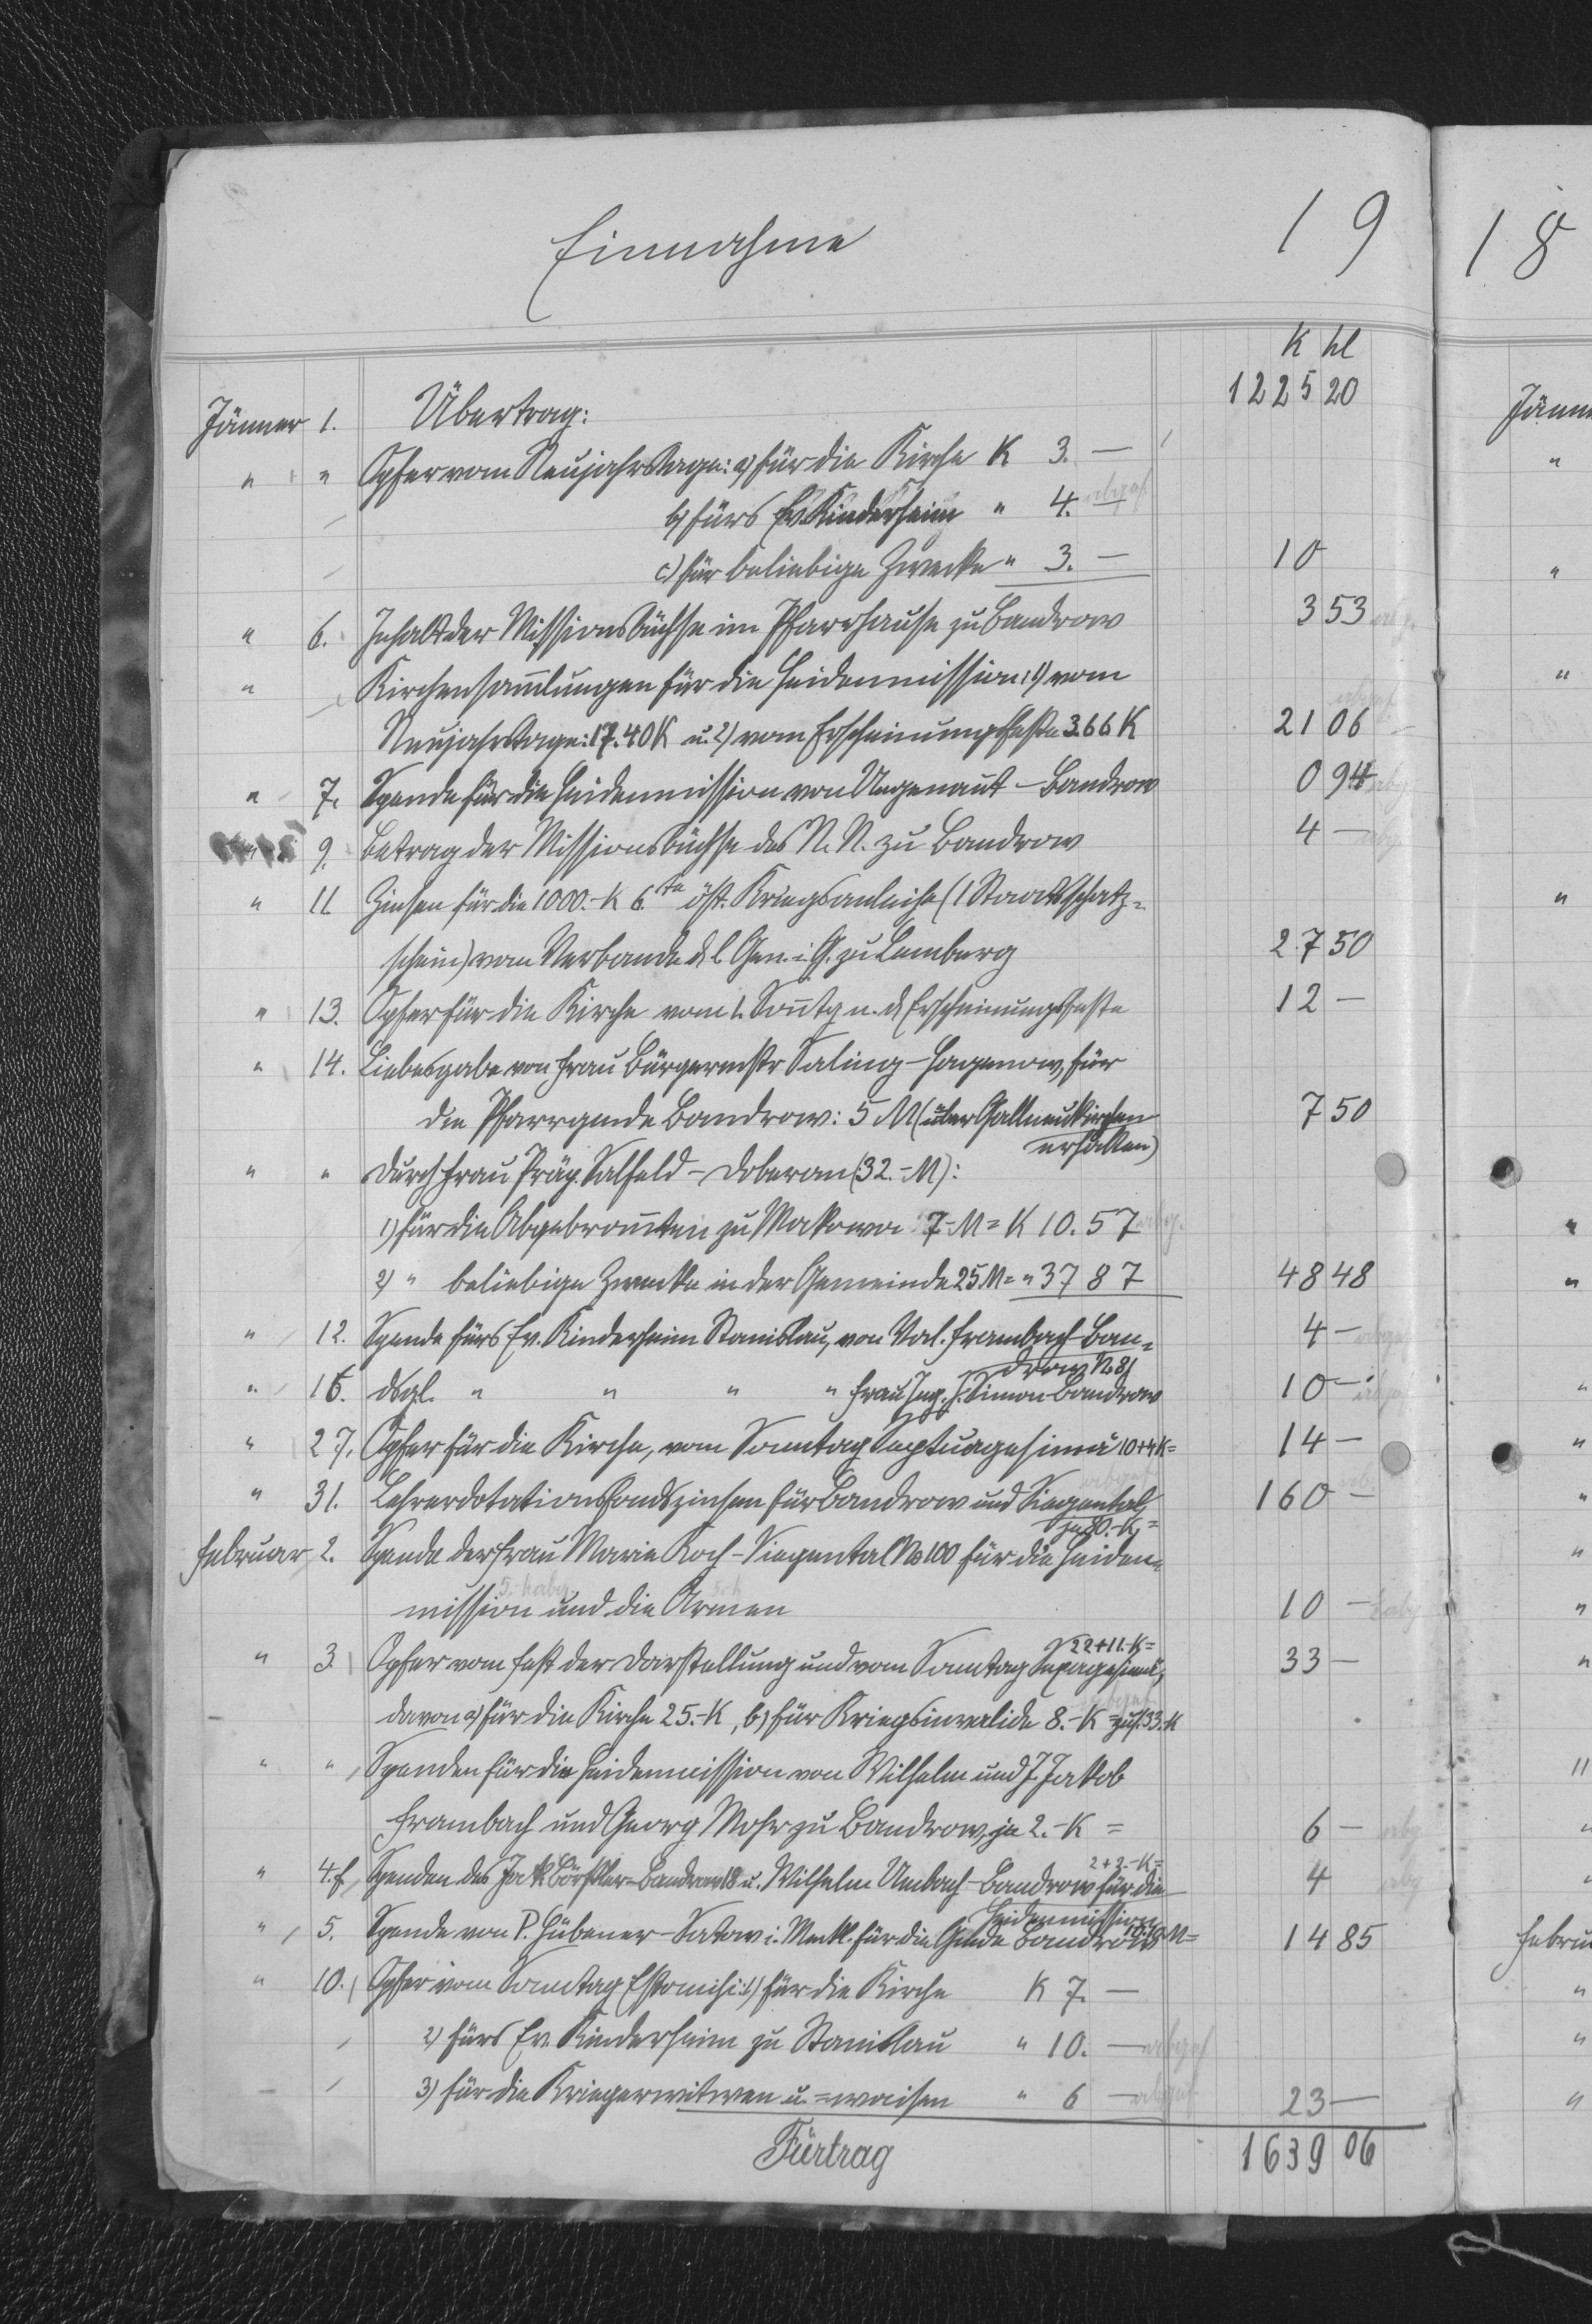 Einnahme 19 18
K hl
Jänner 1. Übertrag: 1225 20
" " Opfer vom Neujahrstage: a) für die Kirche K 3. —
b) fürs Ev. Kinderheim " 4. — abgef.
c) für beliebige Zwecke " 3. — 10
" 6. Inhalt der Missionsbüchse im Pfarrhause zu Bandrow 3 53
" Kirchensam̄lungen für die Heidenmission: 1) vom
Neujahrstage: 17.40 K u. 2) vom Erscheinungsfeste 3.66 K 21 06
" 7. Spende für die Heidenmission von Ungenannt-Bandrow 0 94
9. Betrag der Missionsbüchse des N. N. zu Bandrow 4 —
" 11. Zinsen für die 1000.-K 6.te öst. Kriegsanleihe (1 Staatsschatz-
schein) vom Verbande d. l. Gen. i. G. zu Lemberg 27 50
" 13. Opfer für die Kirche vom 1. Son̄tg n. d. Erscheinungsfeste 12 —
" 14. Liebesgabe von Frau Bürgermstr Saling-Hagenow, für
die Pfarrgmde Bandrow: 5 M (über Gallneukirchen 7 50
erhalten)
" " durch Frau Präp. Salfeld-Doberan (32.-M):
1) für die Abgebran̄ten zu Makowa 7.-M = K 10.57
2) " beliebige Zwecke in der Gemeinde 25 M = " 37 87 48 48
" 12. Spende fürs Ev. Kinderheim Stanislau, von Val. Frambach-Ban- 4 —
drow No 81
" 16. dsgl. " " " " Frau Ing. J. Simon-Bandrow 10 —
" 27. Opfer für die Kirche, vom Sonntag Septuagesimä 10+4 K = 14 —
" 31. Lehrerdotationsfondszinsen für Bandrow und Siegental, 160 —
je 80.-K =
Februar 2. Spende der Frau Marie Koch-Siegental No 100 für die Heiden-
mission und die Armen 10 —
22+11.-K =
" 3. Opfer vom Fest der Darstellung und vom Sonntag Sexagesimä, 33 —
davon a) für die Kirche 25.-K, b) für Kriegsinvalide 8.-K = zus. 33.-K
" " Spenden für die Heidenmission von Wilhelm und J. Jakob
Frambach und Georg Mohr zu Bandrow, je 2.-K = 6 —
2+2.-K =
" 4. f. Spenden des Jak. Börstler-Bandrow 18 u. Wilhelm Umbach-Bandrow für die 4
Heidenmission
" 5. Spende von P. Hübener-Satow i. Meckl. für die Gmde Bandrow 10.-M = 14 85
" 10. Opfer vom Sonntag Estomihi: 1) für die Kirche K 7. —
2) fürs Ev. Kinderheim zu Stanislau " 10. — abgef.
3) für die Kriegerwitwen u. =waisen " 6 — abgef. 23 —
Fürtrag 1639 06